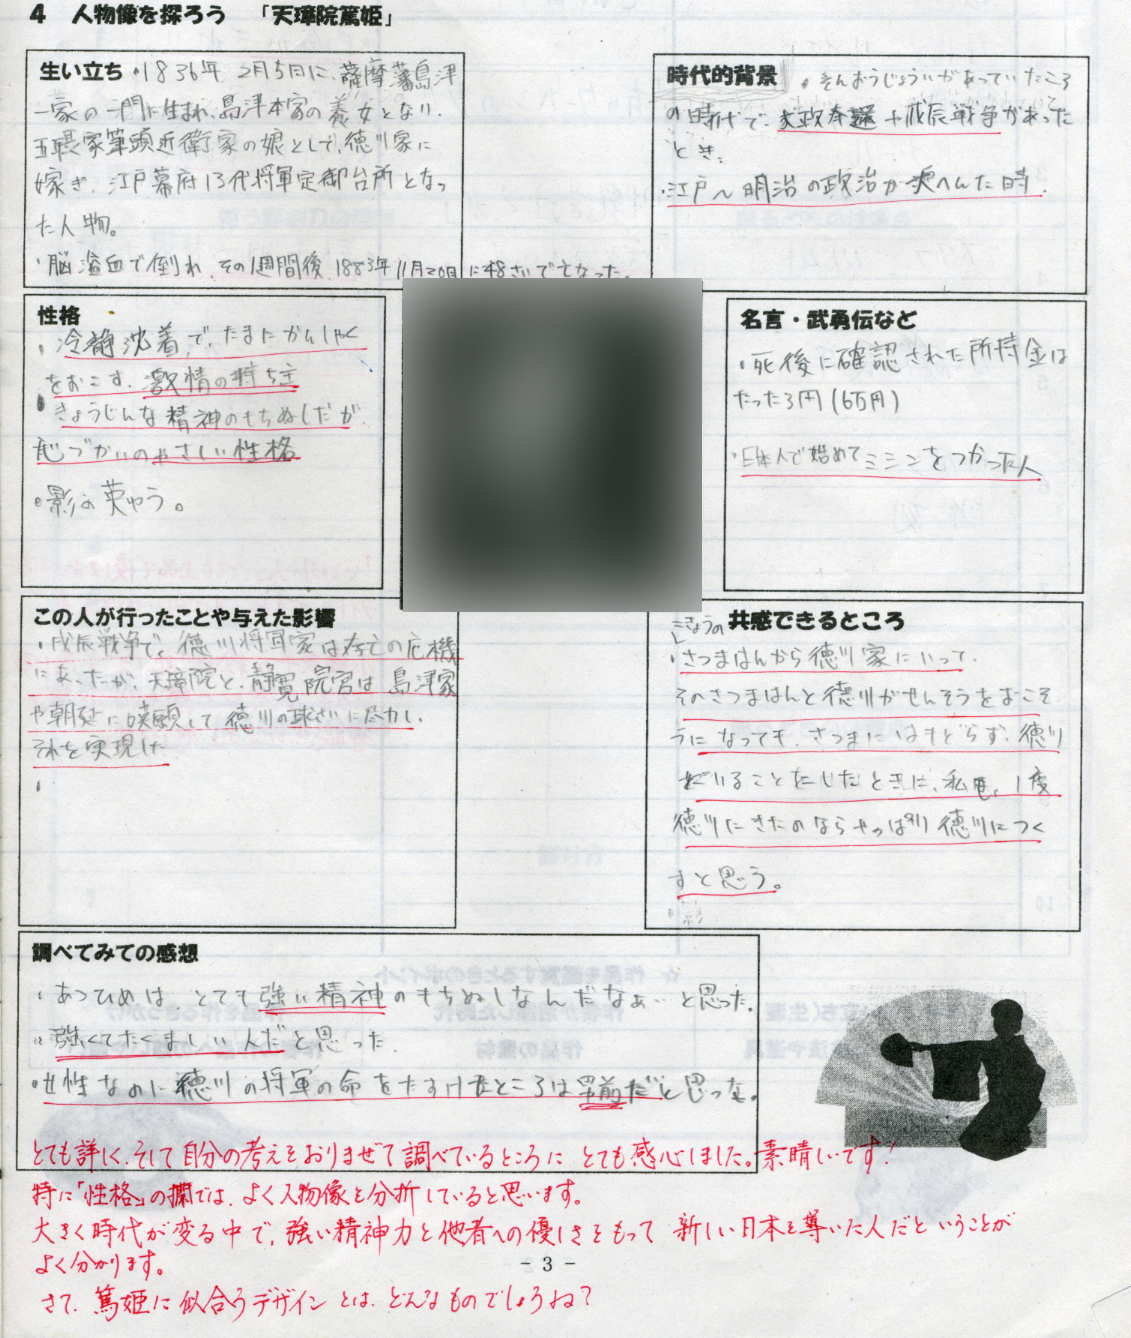 4 人物像を探ろう 「天璋院篤姫」
生い立ち
・1836年 2月5日に、薩摩藩島津
一家の一門に生まれ、島津本家の養女となり、
五摂家筆頭近衛家の娘として、徳川家に
嫁ぎ、江戸幕府13代将軍定御台所となっ
た人物。
・脳溢血で倒れ、その1週間後、1883年11月20日に48さいで亡なった。
時代的背景
・そんおうじょういがあっていたころ
の時代で、大政奉還+戊辰戦争があった
とき。
・江戸〜明治の政治が変へんた時.
性格
・冷静沈着で、たまにかんしゃく
をおこす、激情の持ち主
・きょうじんな精神のもちぬしだが
心づかいのやさしい性格
・影の英ゆう。
名言・武勇伝など
・死後に確認された所持金は
たった3円(6万円)
・日本人で始めてミシンをつかった人
この人が行ったことや与えた影響
・戊辰戦争で、徳川将軍家は存亡の危機
にあったが、天璋院と、静寛院宮は島津家
や朝廷に嘆願して徳川の救さいに尽力し、
それを実現した
共感できるところ
・さつまはんから徳川家にいって、
そのさつまはんと徳川がせんそうをおこそ
うになっても、さつまにはもどらず、徳川
にいることをしたときに、私も、1度
徳川にきたのならやっぱり徳川につく
すと思う。
調べてみての感想
・あつひめは とても強い精神のもちぬしなんだなぁ…と思った。
・強くてたくましい人だと思った.
・女性なのに徳川の将軍の命をたすけたところは男前だと思った。
とても詳しく、そして自分の考えをおりまぜて調べているところに とても感心しました。素晴しいです!
特に「性格」の欄では、よく人物像を分析していると思います。
大きく時代が変る中で、強い精神力と他者への優しさをもって 新しい日本を導いた人だということが
よく分かります。
- 3 -
さて、篤姫に似合うデザインとは、どんなものでしょうね?